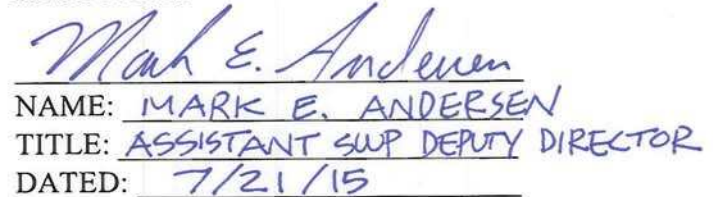 Mark E. Andersen
NAME: MARK E. ANDERSEN
TITLE: ASSISTANT SWP DEPUTY DIRECTOR
DATED: 7/21/15